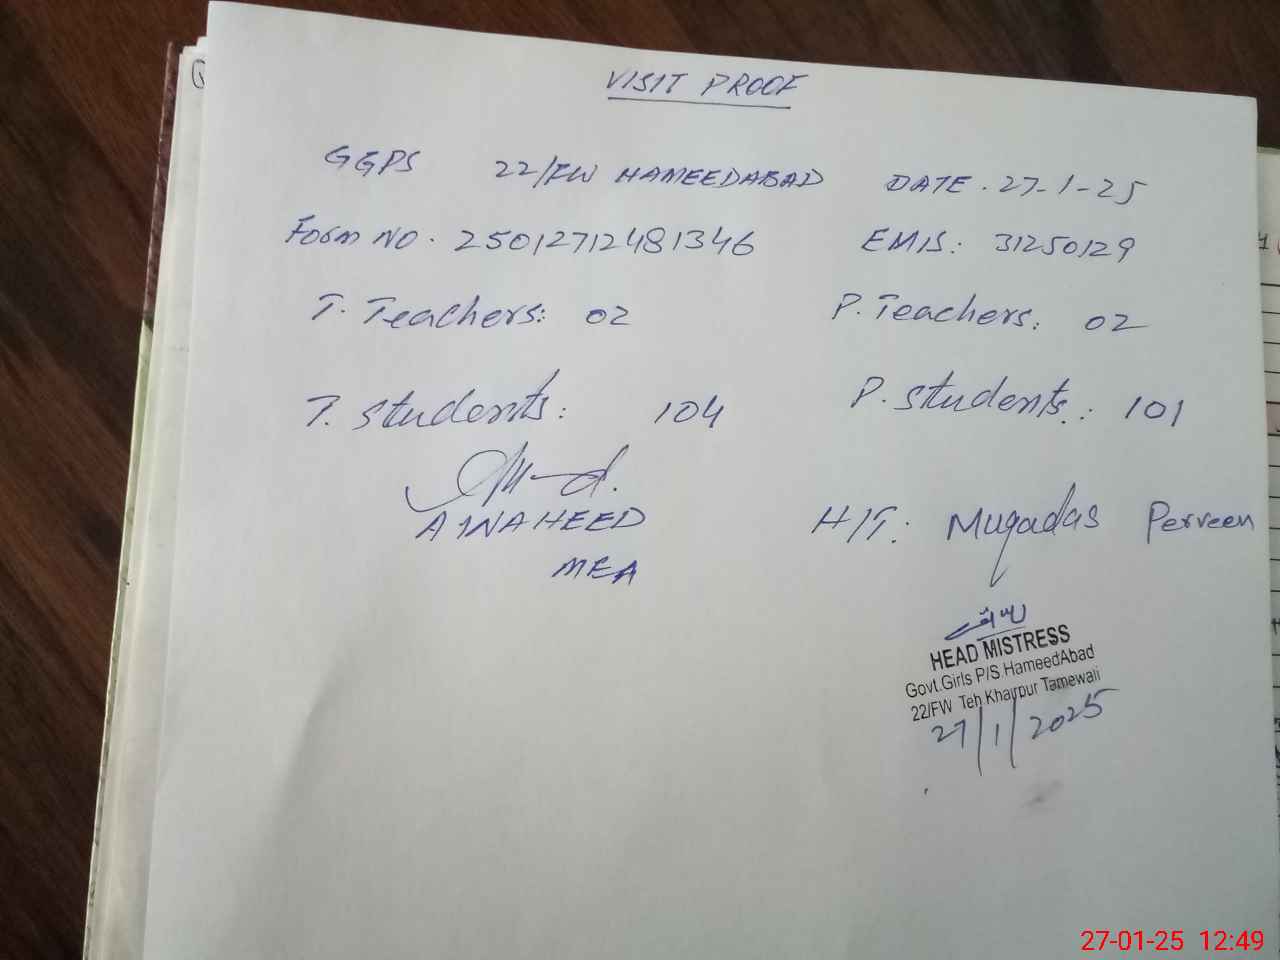 VISIT PROOF
GGPS 22/FW HAMEEDABAD DATE. 27-1-25
Form NO. 25012712481346 EMIS: 31250129
T. Teachers: 02 P. Teachers: 02
T. Students: 104 P. Students: 101
A WAHEED H/T: Muqadas Perveen
MEA
HEAD MISTRESS
Govt.Girls P/S HameedAbad
22/FW Teh Khairpur Tamewali
27/1/2025
27-01-25 12:49